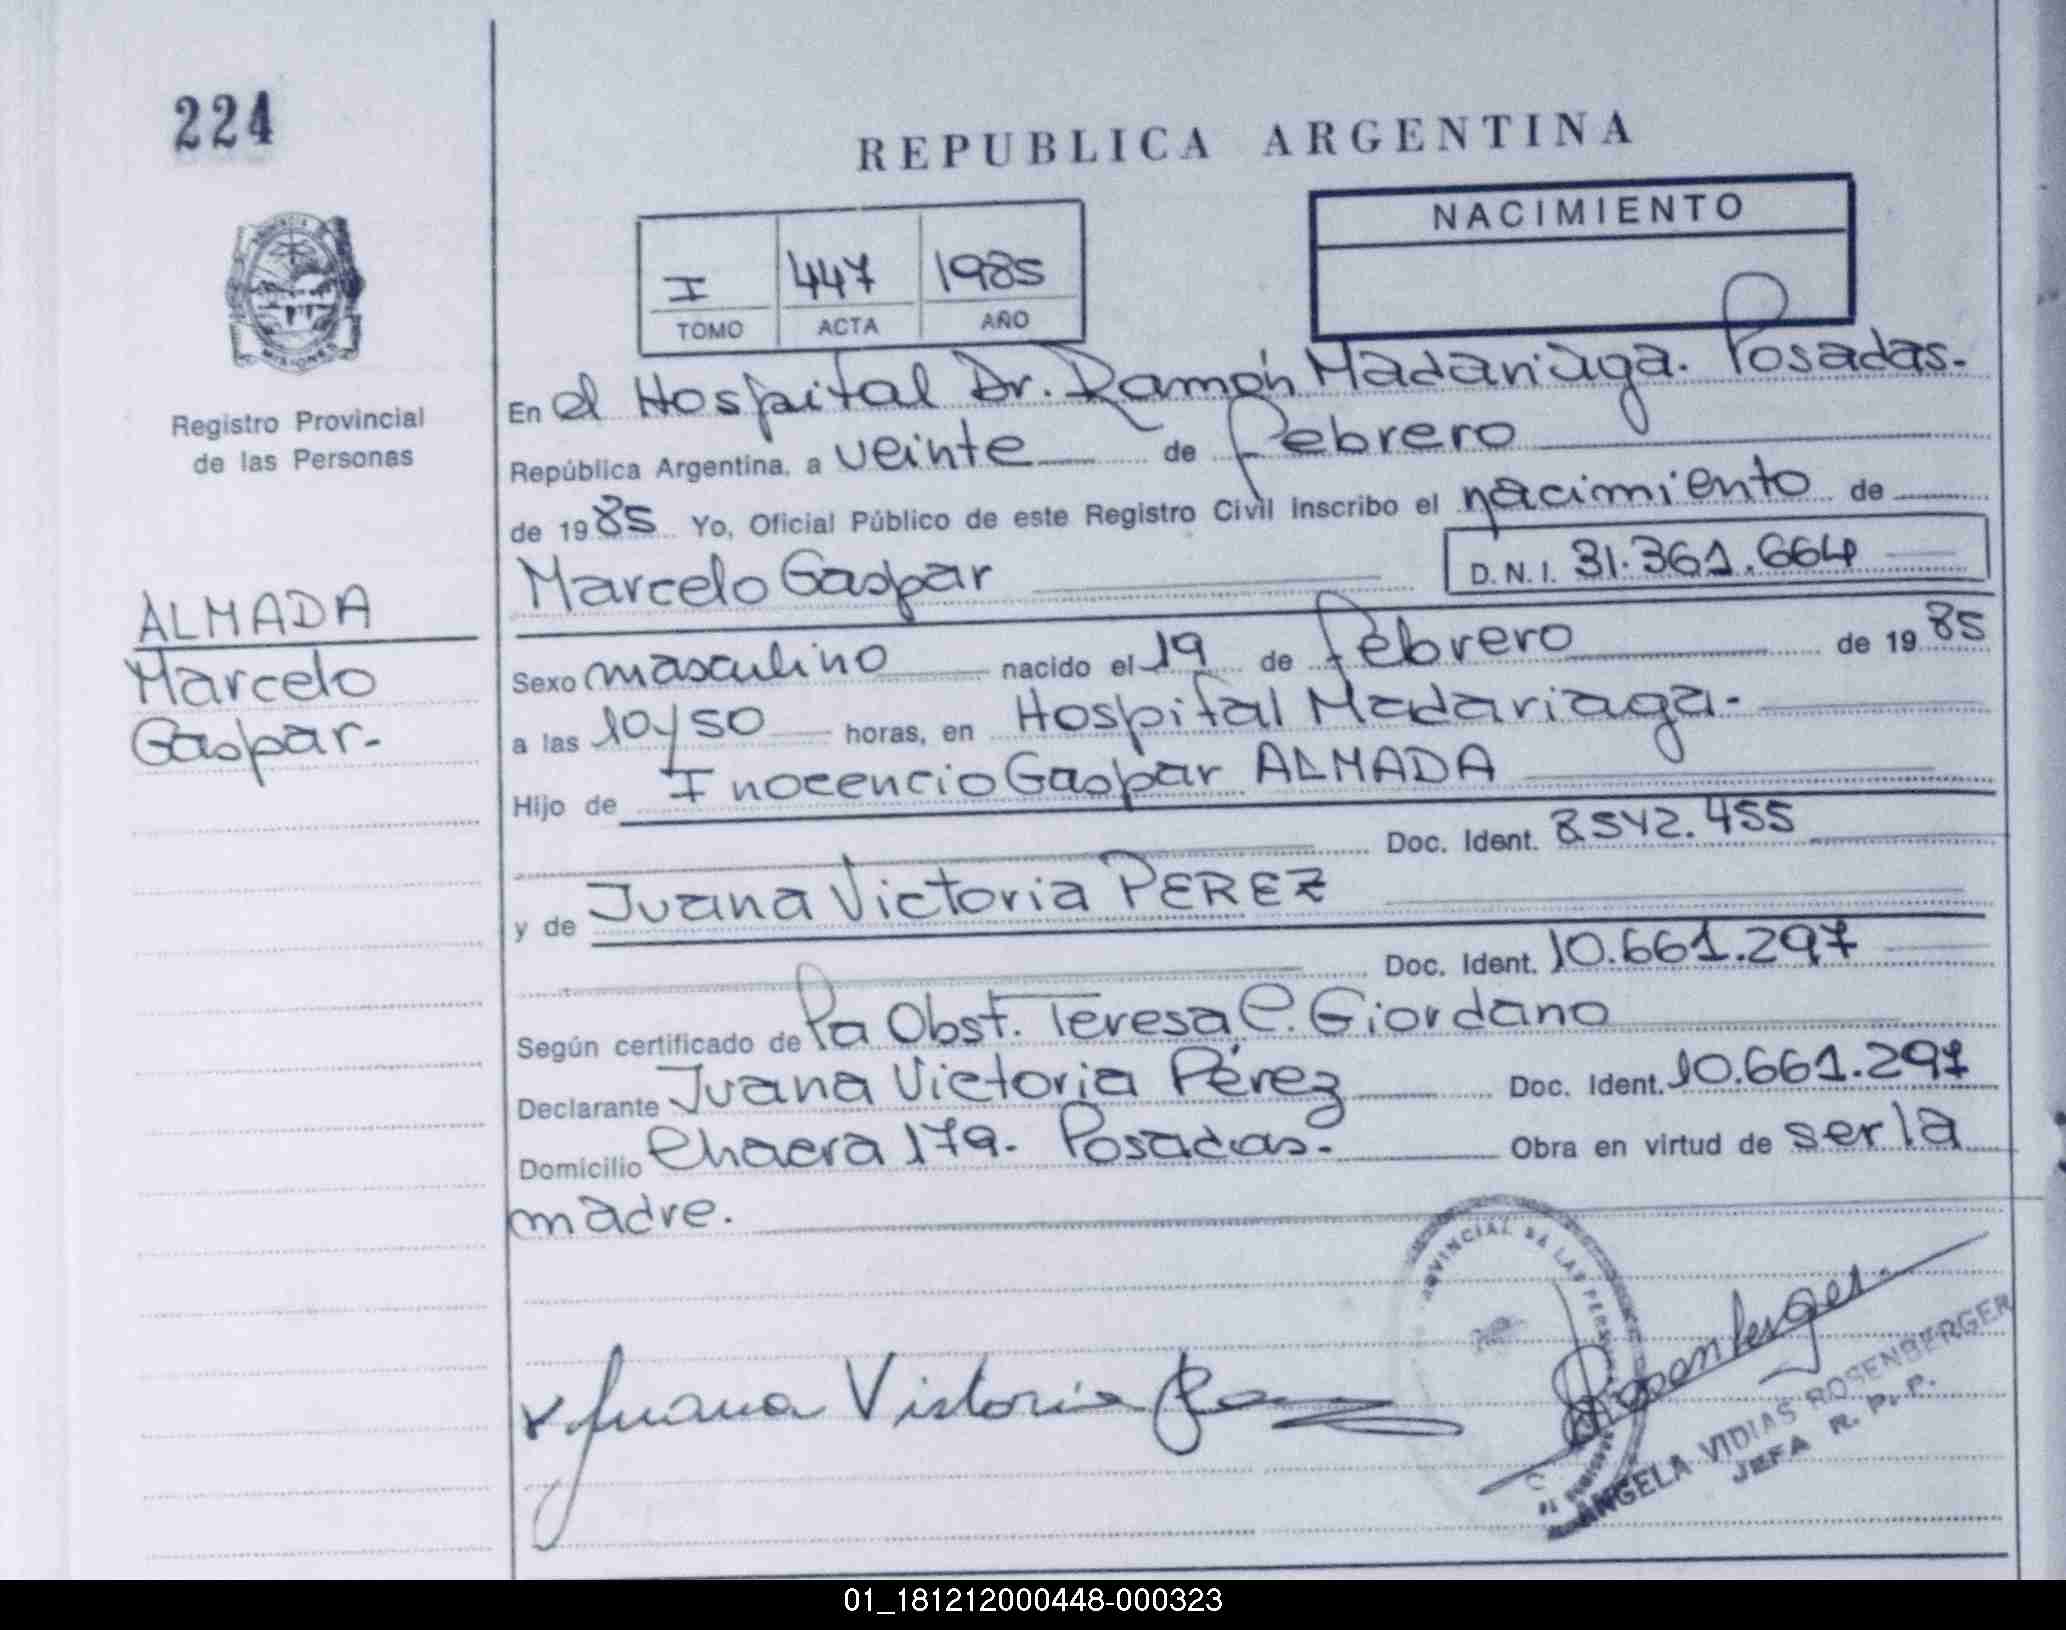 224
REPUBLICA ARGENTINA
NACIMIENTO
I 447 1985
TOMO ACTA AÑO
MISIONES
Registro Provincial
de las Personas
ALMADA
Marcelo
Gaspar.-
En el Hospital Dr. Ramón Madariaga. Posadas.-
República Argentina, a veinte de febrero
de 1985 Yo, Oficial Público de este Registro Civil inscribo el nacimiento de
Marcelo Gaspar D.N.I. 31.361.664
Sexo masculino nacido el 19 de febrero de 1985
a las 10y50 horas, en Hospital Madariaga.-
Hijo de Inocencio Gaspar ALMADA
Doc. Ident. 8542.455
y de Juana Victoria PEREZ
Doc. Ident. 10.661.297
Según certificado de la Obst. Teresa C. Giordano
Declarante Juana Victoria Pérez Doc. Ident. 10.661.297
Domicilio Chacra 179.- Posadas.- Obra en virtud de ser la
madre.
PROVINCIAL DE LAS PERSONAS
Juana Victoria
Rosenberger
ANGELA VIDIAS ROSENBERGER
JEFA R. P. P.
01_181212000448-000323